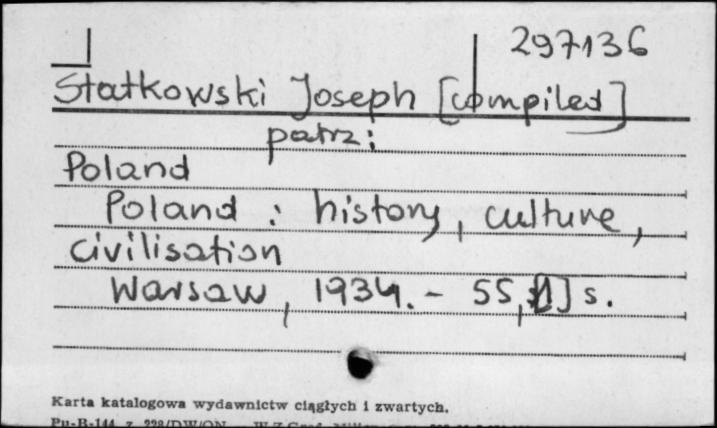 297136
Statkowski Joseph [compiled]
patrz:
Poland
Poland : history, culture,
civilisation
Warsaw, 1934. - 55,[1] s.
Karta katalogowa wydawnictw ciągłych i zwartych.
Pu-B-144 z. 228/DW/ON